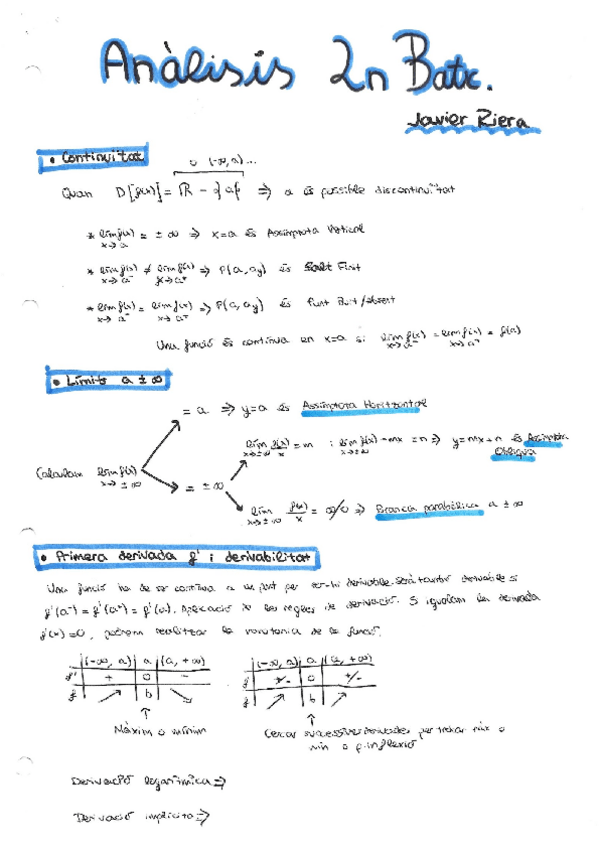 Anàlisis 2n Batx.
Javier Riera
• Continuïtat
o (-∞, a) ...
Quan D[f(x)] = ℝ - {a} ⇒ a és possible discontinuïtat
* lim f(x) = ± ∞ ⇒ x=a és Assímptota Vertical
x→a
* lim f(x) ≠ lim f(x) ⇒ P(a, ay) és Salt Finit
x→a⁻ x→a⁺
* lim f(x) = lim f(x) ⇒ P(a, ay) és Punt Buit/
x→a⁻ x→a⁺
Una funció és contínua en x=a si lim f(x) = lim f(x) = f(a)
x→a⁻ x→a⁺
• Límits a ±∞
= a ⇒ y=a és Assímptota Horitzontal
lim f(x)/x = m ; lim f(x) - mx = n ⇒ y=mx+n és Assímptota
x→±∞ x→±∞
Obliqua
Calculam lim f(x)
x→±∞
= ±∞
lim f(x)/x = ∞/0 ⇒ Branca parabòlica a ±∞
x→±∞
• Primera derivada f' i derivabilitat
Una funció ha de ser contínua a un punt per ser-hi derivable. Serà també derivable si
f'(a⁻) = f'(a⁺) = f'(a). Aplicació de les regles de derivació. Si igualam la derivada
f'(x)=0, podrem realitzar la monotonia de la funció.
(-∞, a) a (a, +∞)
f' + 0 -
f ↗ b ↘
↑
Màxim o mínim
(-∞, a) a (a, +∞)
f' +/- 0 +/-
f ↗ b ↗
↑
Cercar successives derivades per trobar màx o
mín o p. inflexió
Derivació logarítmica ⇒
Derivació implícita ⇒